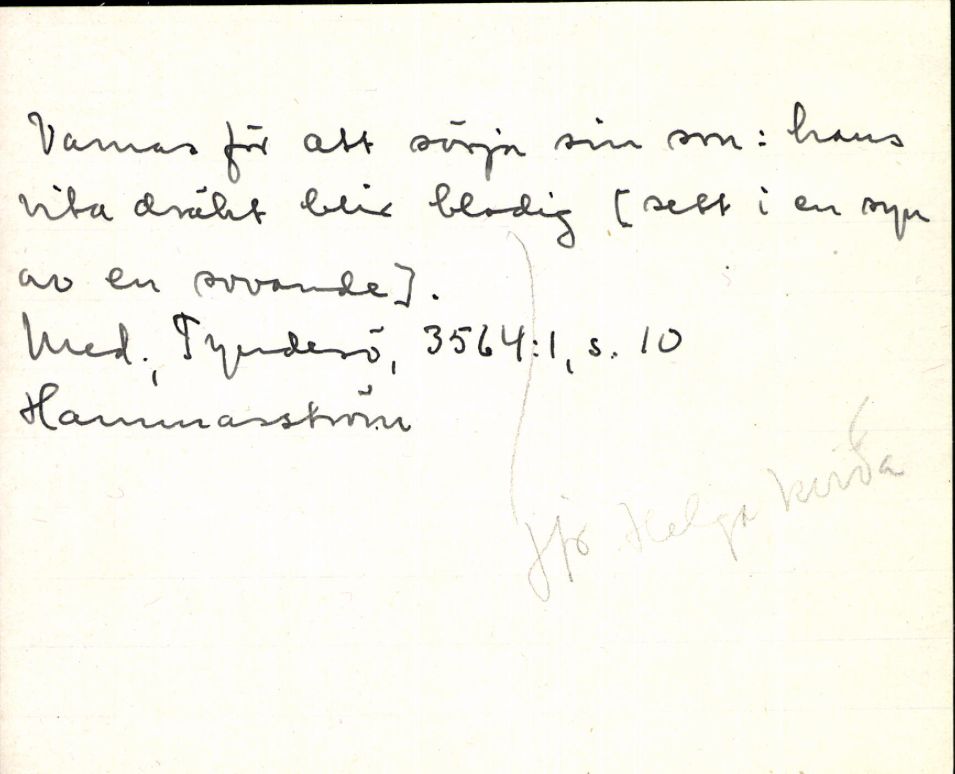 Varnas för att sörja sin son: hans
vita dräkt blir blodig [sett i en syn
av en sovande].
Med., Tynderö, 3564:1, s. 10
Hammarström
jfr Helga